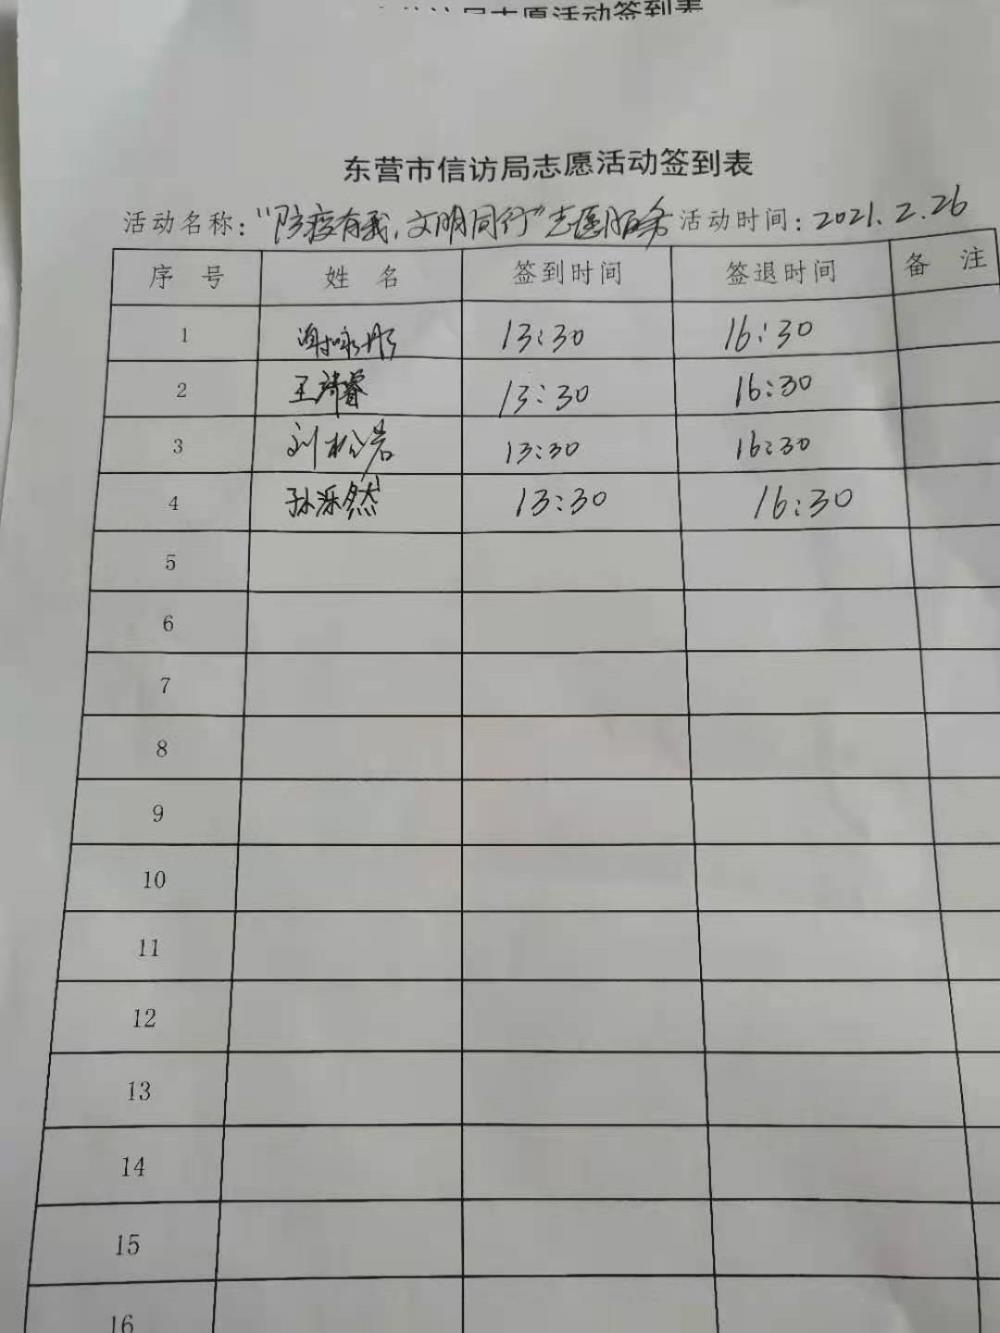 信访局志愿活动签到表
东营市信访局志愿活动签到表
活动名称：“防疫有我，文明同行”志愿服务 活动时间：2021.2.26
序 号 姓 名 签到时间 签退时间 备 注
1 谢咏彤 13:30 16:30
2 王诗睿 13:30 16:30
3 刘松岩 13:30 16:30
4 孙泺然 13:30 16:30
5
6
7
8
9
10
11
12
13
14
15
16